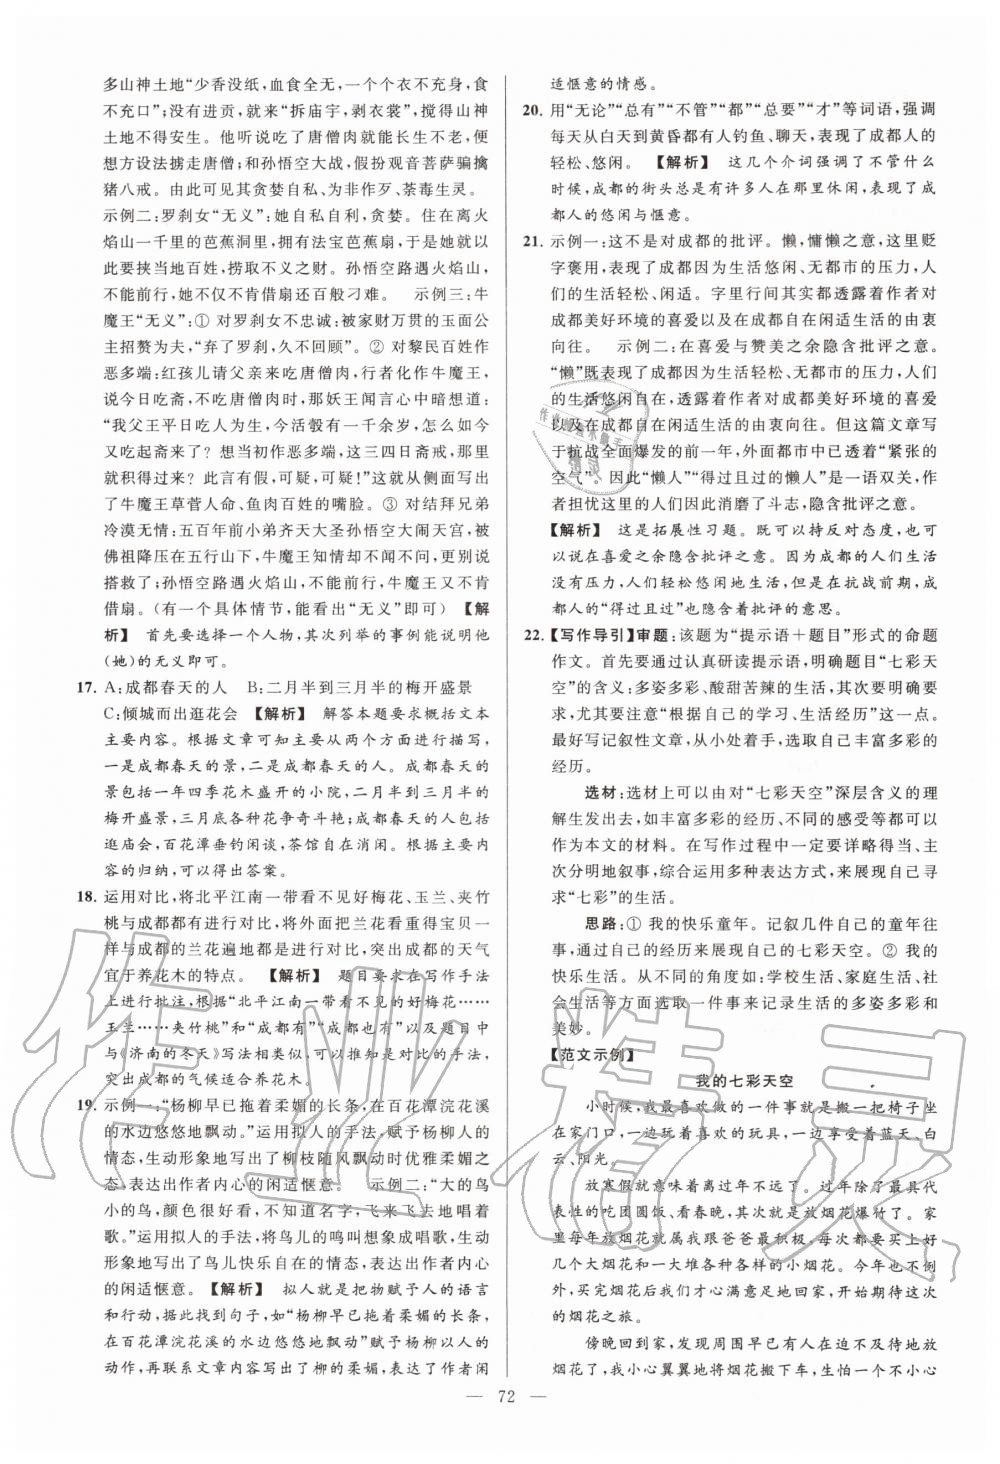 多山神土地“少香没纸，血食全无，一个个衣不充身，食
不充口”；没有进贡，就来“拆庙宇，剥衣裳”，搅得山神
土地不得安生。他听说吃了唐僧肉能生长不老，便
想方设法掳走唐僧；和孙悟空大战，假扮观音菩萨骗擒
猪八戒。由此可见其贪婪自私、为非作歹、荼毒生灵。
示例二：罗刹女“无义”：她自私自利，贪婪。住在离火
焰山一千里的芭蕉洞里，拥有法宝芭蕉扇，但是她却以
此要挟当地百姓，捞取不义之财。孙悟空路遇火焰山，
不能前行，她不仅不肯借扇还百般刁难。 示例三：牛
魔王“无义”：① 对罗刹女不忠诚：被家财万贯的玉面公
主招赘为夫，“弃了罗刹，久不回顾”。② 对黎民百姓作
恶多端：红孩儿请父亲来吃唐僧肉，行者化作牛魔王，
说今日吃斋，不吃唐僧肉时，那妖王闻言心中暗想道：
“我父王平日吃人为生，今活彀有一千余岁，怎么如今
又吃起斋来了？想当初作恶多端，这三四日斋戒，那里
就积得过来？此言有假，可疑，可疑！”这从侧面写出
了牛魔王草菅人命、鱼肉百姓的嘴脸。③ 对结拜兄弟
冷漠无情：五百年前小弟齐天大圣孙悟空大闹天宫，被
佛祖降压在五行山下，牛魔王却不闻不问，更别说
搭救了；孙悟空路遇火焰山，不能前行，牛魔王又不肯
借扇。（有一个具体情节，能显示“无义”即可）【解
析】 首先要选择一个人物，其次列举的事例能说明他
（她）的无义即可。
17. A：成都春天的人 B：二月半到三月半的梅开盛景
C：倾城而出逛花会 【解析】 解答本题要求概括文本
主要内容。根据文章可知主要从两个方面进行描写，
一是成都春天的景，二是成都春天的人。成都春天的
景包括一年四季花木盛开的小院，二月半到三月半的
梅开盛景，三月底各种花争奇斗艳；成都春天的人包括
逛庙会，百花潭垂钓闲谈，茶馆自在消闲。根据本文内
容的归纳，可以得出答案。
18. 运用对比，将北平江南一带看不见好梅花、玉兰、夹竹
桃与成都都有进行对比，将外面把兰花看重得宝贝一
样与成都的兰花遍地都是进行对比，突出成都的天气
宜于养花木的特点。 【解析】 题目要求在写作手法
上进行批注，根据“北平江南一带看不见的好梅花……
玉兰……夹竹桃”和“成都有”“成都也有”以及题目中
与《济南的冬天》写法相类似，可以推知是对比的手法，
突出成都的气候适合养花木。
19. 示例一：“杨柳早已拖着柔媚的长条，在百花潭浣花溪
的水边悠悠地飘动。”运用拟人的手法，赋予杨柳人的
情态，生动形象地写出了柳枝随风飘动时优雅柔媚之
态，表达出作者内心的闲适惬意。 示例二：“大的鸟
小的鸟，颜色很好看，不知道名字，飞来飞去地唱着
歌。”运用拟人的手法，将鸟儿的鸣叫想成唱歌，生动
形象地写出鸟儿快乐自在的情态，表达出作者内心
的闲适惬意。【解析】 拟人就是把物赋予人的语言
和行动，据此找到句子，如“杨柳早已拖着柔媚的长条，
在百花潭浣花溪的水边悠悠地飘动”赋予杨柳以人的
动作，再联系文章内容写出了柳的柔媚，表达了作者闲
适惬意的情感。
20. 用“无论”“总有”“不管”“都”“总要”“才”等词语，强调
每天从白天到黄昏都有人钓鱼、聊天，表现了成都人的
轻松、悠闲。 【解析】 这几个介词强调了不管什么
时候，成都的街头总是有许多人在那里休闲，表现了成
都人的悠闲与惬意。
21. 示例一：这不是对成都的批评。懒，慵懒之意，这里贬
字褒用，表现了成都因为生活悠闲、无都市的压力，人
们的生活轻松、闲适。字里行间其实都透露着作者对
成都美好环境的喜爱以及对成都自在闲适生活的由衷
向往。 示例二：在喜爱与赞美之余隐含批评之意。
“懒”既表现了成都人生活轻松、无都市生活的压力，人
们生活悠闲自在，透露着作者对成都美好环境的喜爱
以及在成都自在闲适生活的由衷向往。但这篇文章写
于抗战全面爆发的前一年，外面都市中已透着“紧张的
空气”。因此“懒人”“得过且过的懒人”是一语双关，作
者担忧这里的人们因此消磨了斗志，隐含批评之意。
【解析】 这是拓展性习题。既可以持反对态度，也可
以表示在喜爱之余隐含批评之意。因为成都的人们生活
没有压力，人们轻松悠闲地生活，但是在抗战前期，成
都人的“得过且过”也隐含着批评的意思。
22. 【写作导引】审题：该题为“提示语＋题目”形式的命题
作文。首先要通过认真研读提示语，明确题目“七彩天
空”的含义：多姿多彩、酸甜苦辣的生活，其次要明确要
求，尤其要注意“根据自己的学习、生活经历”这一点。
最好写记叙性文章，从小处着手，选取自己丰富多彩的
经历。
选材：选材上可以由对“七彩天空”深层含义的理
解生发出去，如丰富多彩的经历、不同的感受等都可以
作为本文的材料。在写作过程中一定要详略得当，充
分调动叙事，综合运用多种表达方式，来展现自己寻
求“七彩”的生活。
思路：① 我的快乐童年。记叙几件自己的童年往
事，通过自己的经历来展现自己的七彩天空。② 我的
快乐生活。从不同的角度如：学校生活、家庭生活、社
会生活等方面选取一件事来记录生活的多姿多彩和
美妙。
【范文示例】
我的七彩天空
小时候，我最喜欢做的一件事就是搬一把椅子坐
在家门口，一边玩着喜欢的玩具，一边享受着蓝天、白
云、阳光。
放寒假就意味着离过年不远了。过年除了最具代
表性的吃团圆饭、看春晚，还可以放烟花爆竹了。家
里每年放烟花就属我跟爸爸最积极，每次都要买上好
几个大烟花和一大堆各种各样的小烟花。今年也不例
外，买完烟花后我们才心满意足地回家，开始期待这次
的烟花之旅。
傍晚回到家，发现周围早已有人在迫不及待地放
烟花了，我小心翼翼地将烟花搬下车，生怕一个不小心
— 72 —
作业精灵